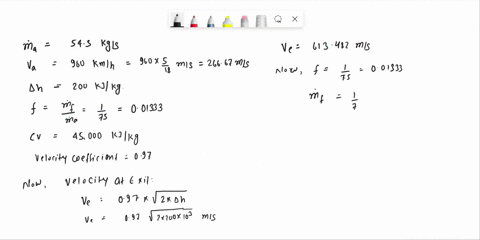 ṁa = 54.3 kg/s
Va = 960 km/h = 960 × 5/18 m/s = 266.67 m/s
Δh = 200 kJ/kg
f = ṁf/ma = 1/75 = 0.01333
CV = 45,000 kJ/kg
Velocity coefficient = 0.97
Now, Velocity at Exit:
Ve = 0.97 × √2 × Δh
Ve = 0.97 √2×200×10³ m/s
Ve = 613.482 m/s
Now, f = 1/75 = 0.01333
ṁf = 1/7